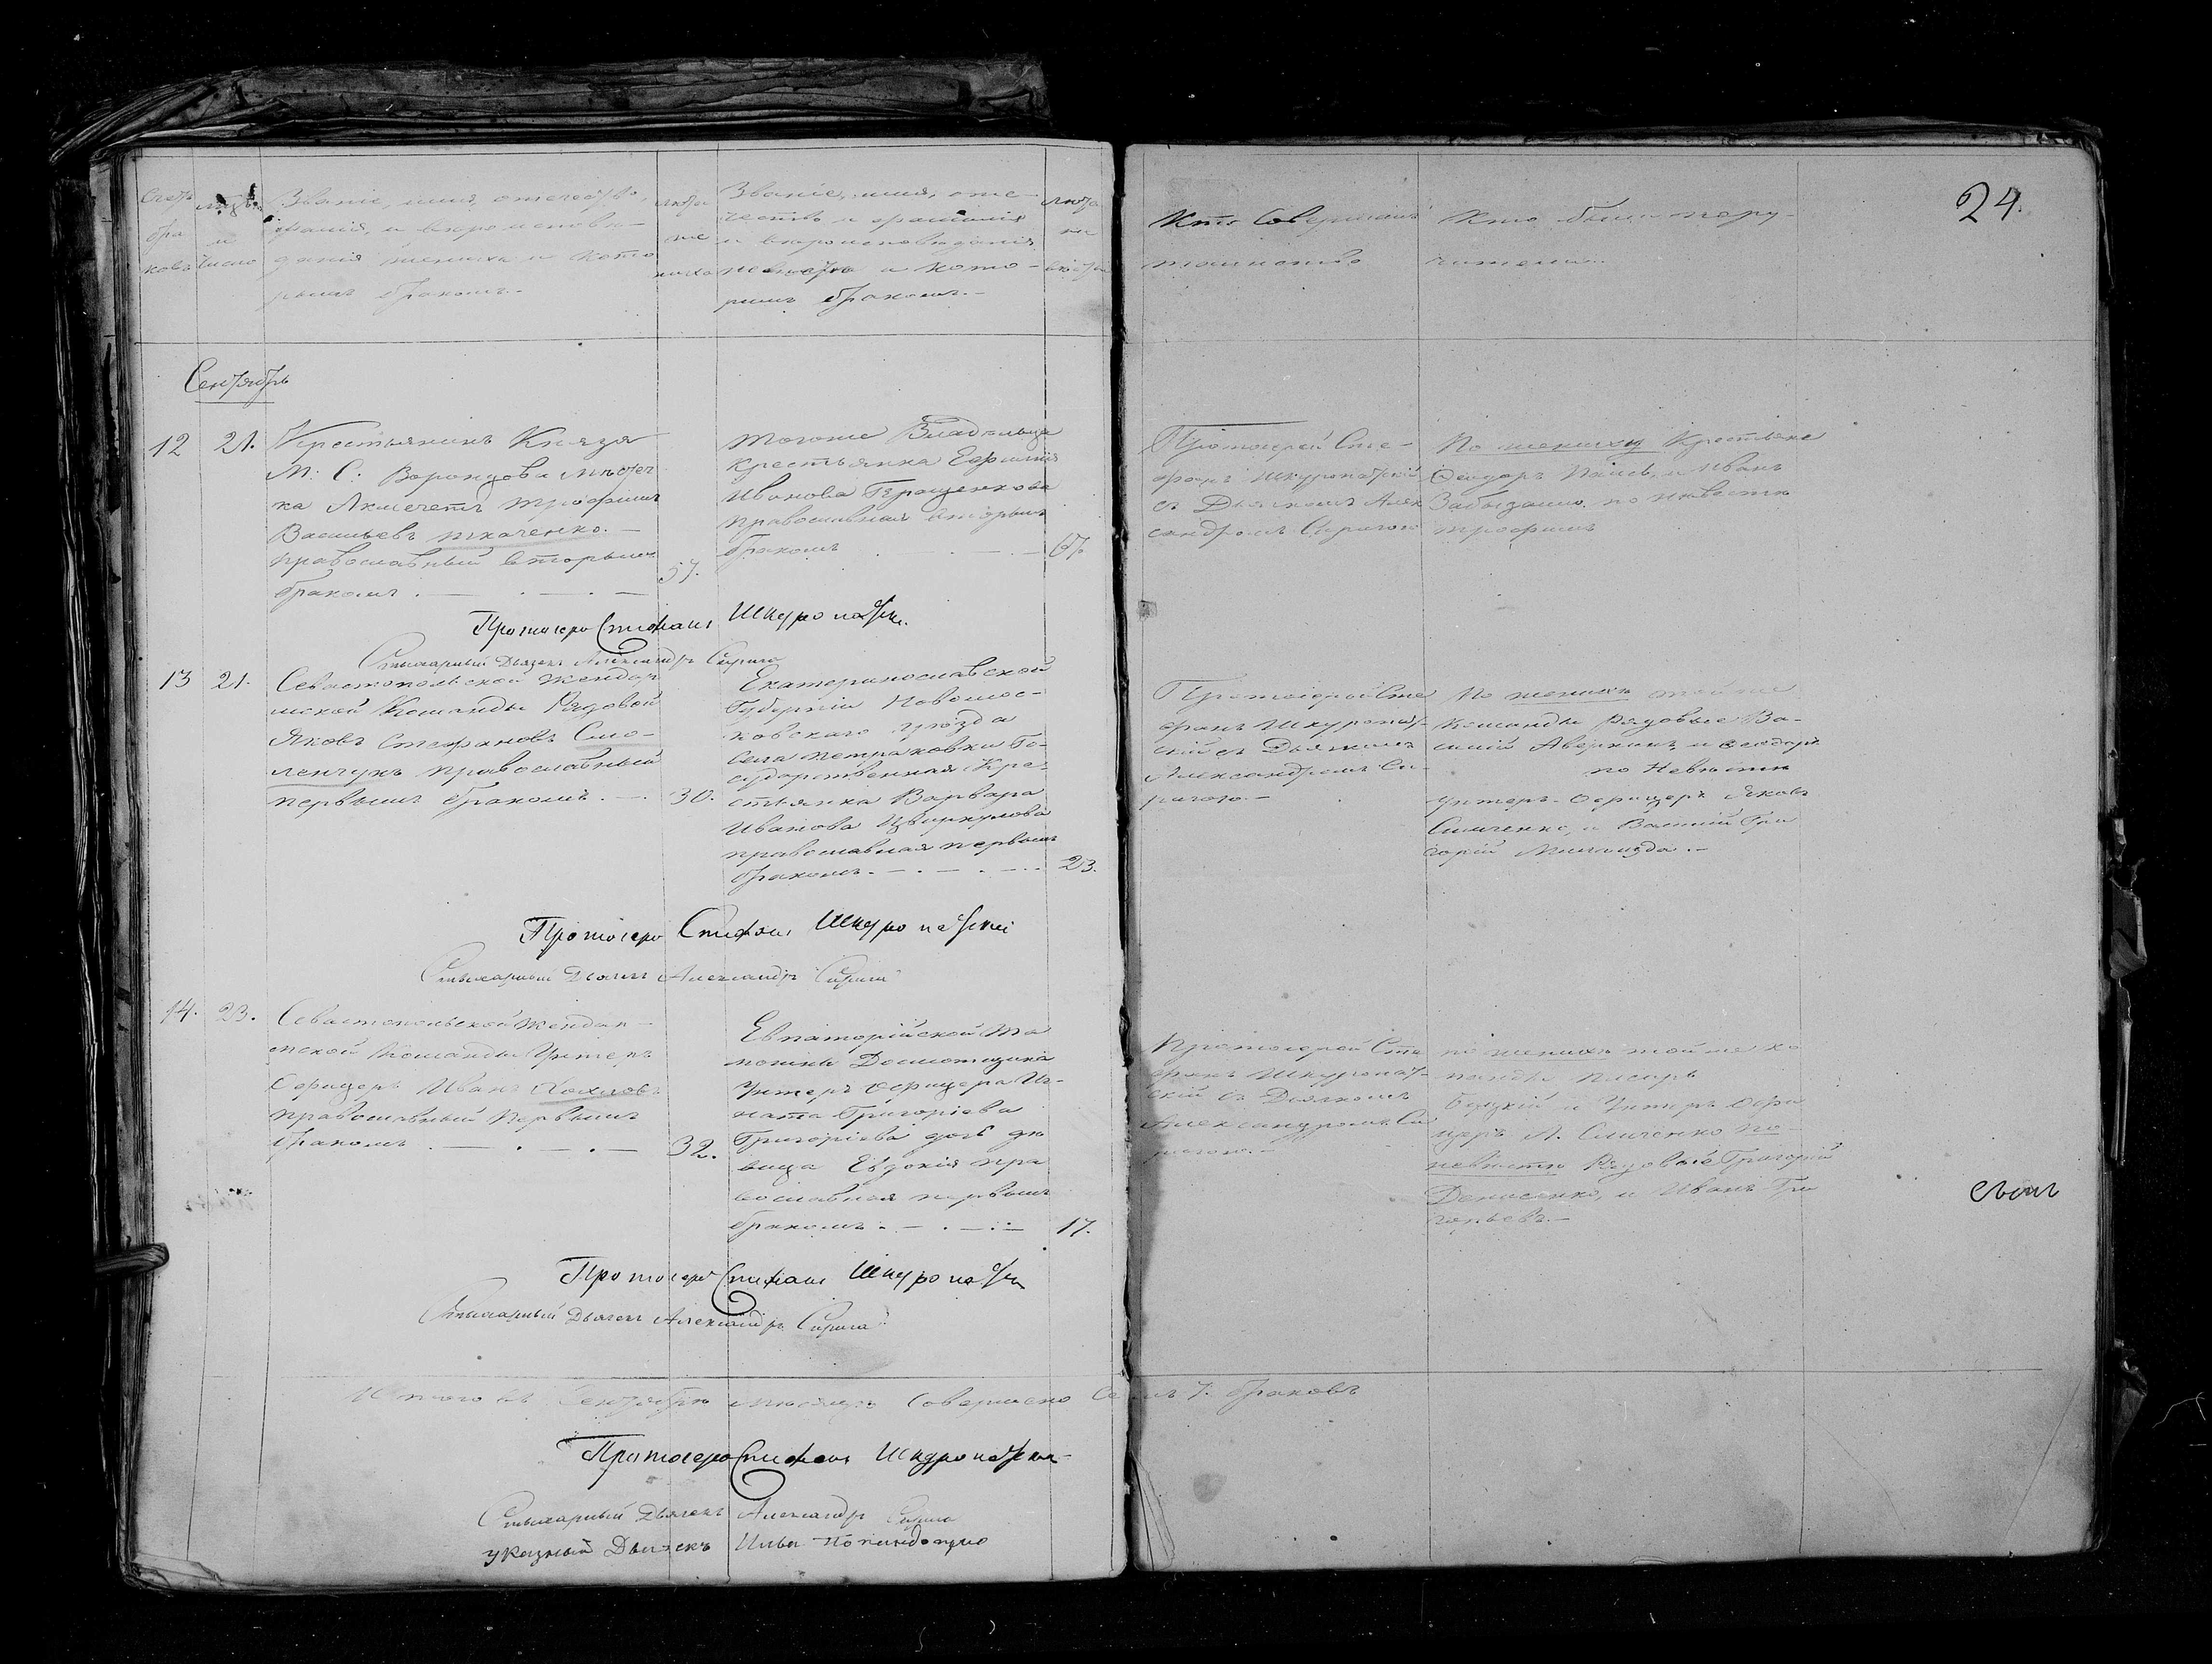 Счетъ
бра
ковъ
и
число
Званіе, имя, отечество,
фамилія, и вѣроисповѣ-
данія жениха и кото
рымъ бракомъ.-
лѣта
же
ниха
Званіе, имя, оте-
чество и фамилія
и вѣроисповѣданія
невѣсты и кото-
рымъ бракомъ.-
лѣта
не
вѣсты
Кто совершалъ
таинство
Кто были пору-
чители.
24.
Сентябрь
12 21. Крестьянинъ Князя
М: С: Воронцова мѣстеч
ка Акмечетъ Трофимъ
Васильевъ Ткаченко.-
православный вторымъ
бракомъ. 57.
Тогоже Владѣльца
крестьянка Евфимія
Иванова Геращенкова
православная вторымъ
бракомъ 67
Протоіерей Сте-
фанъ Шкуропатскій
съ Дьячкомъ Алек
сандромъ Сиригою
По жениху Крестьяне
Ѳеодоръ и Иванъ
по невѣстѣ
Трофимъ
Протоіерей Стефанъ Шкуропатскій
Стихарный Дьячекъ Александръ Сирига
13 21. Севастопольской Жандар
мской Команды Рядовой
Яковъ Стефановъ Смо-
ленчукъ православный
первымъ бракомъ. 30.
Екатеринославской
Губерніи Новомос-
ковскаго уѣзда
села Петраковки Го-
сударственная Кре-
стьянка Варвара
Иванова
православная первымъ
бракомъ. 23.
Протоіерей Сте
фанъ Шкуропат-
скій съ Дьячкомъ
Александромъ Си-
ригою.-
По женихѣ тойже
Команды Рядовые Ва-
силій Аверкинъ и Ѳеодоръ
по Невѣстѣ
Унтеръ-Офицеръ Яковъ
Симченко, и Василій Гри
горій
Протоіерей Стефанъ Шкуропатскій
Стихарный Дьячекъ Александръ Сирига
14. 23. Севастопольской Жандар-
мской Команды Унтеръ
Офицеръ Иванъ Хохловъ
православный первымъ
бракомъ 32.
Евпаторійской Та
можни Досмотщика
Унтеръ Офицера Иг-
ната Григоріева
Григоріева дочь дѣ
вица Евдокія пра
вославная первымъ
бракомъ. 17.
Протоіерей Сте
фанъ Шкуропат-
скій съ Дьячкомъ
Александромъ Си
ригою.-
по женихѣ тойже ко
манды писарь
и Унтеръ Офи
церъ Я. Симченко по
невѣстѣ Рядовые Григорій
Денисенко, и Иванъ Гри
горьевъ.-
Протоіерей Стефанъ Шкуропатскій
Стихарный Дьячекъ Александръ Сирига
Итого въ Сентябрѣ мѣсяцѣ совершено семь 7. браковъ
Протоіерей Стефанъ Шкуропатскій
Стихарный Дьячекъ Александръ Сирига
Указный Дьячекъ Илья